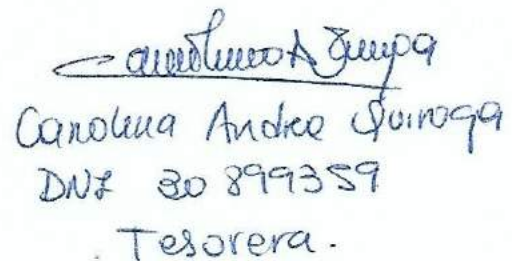 Carolina A Quiroga
Carolina Andrea Quiroga
DNI 30 899359
Tesorera.